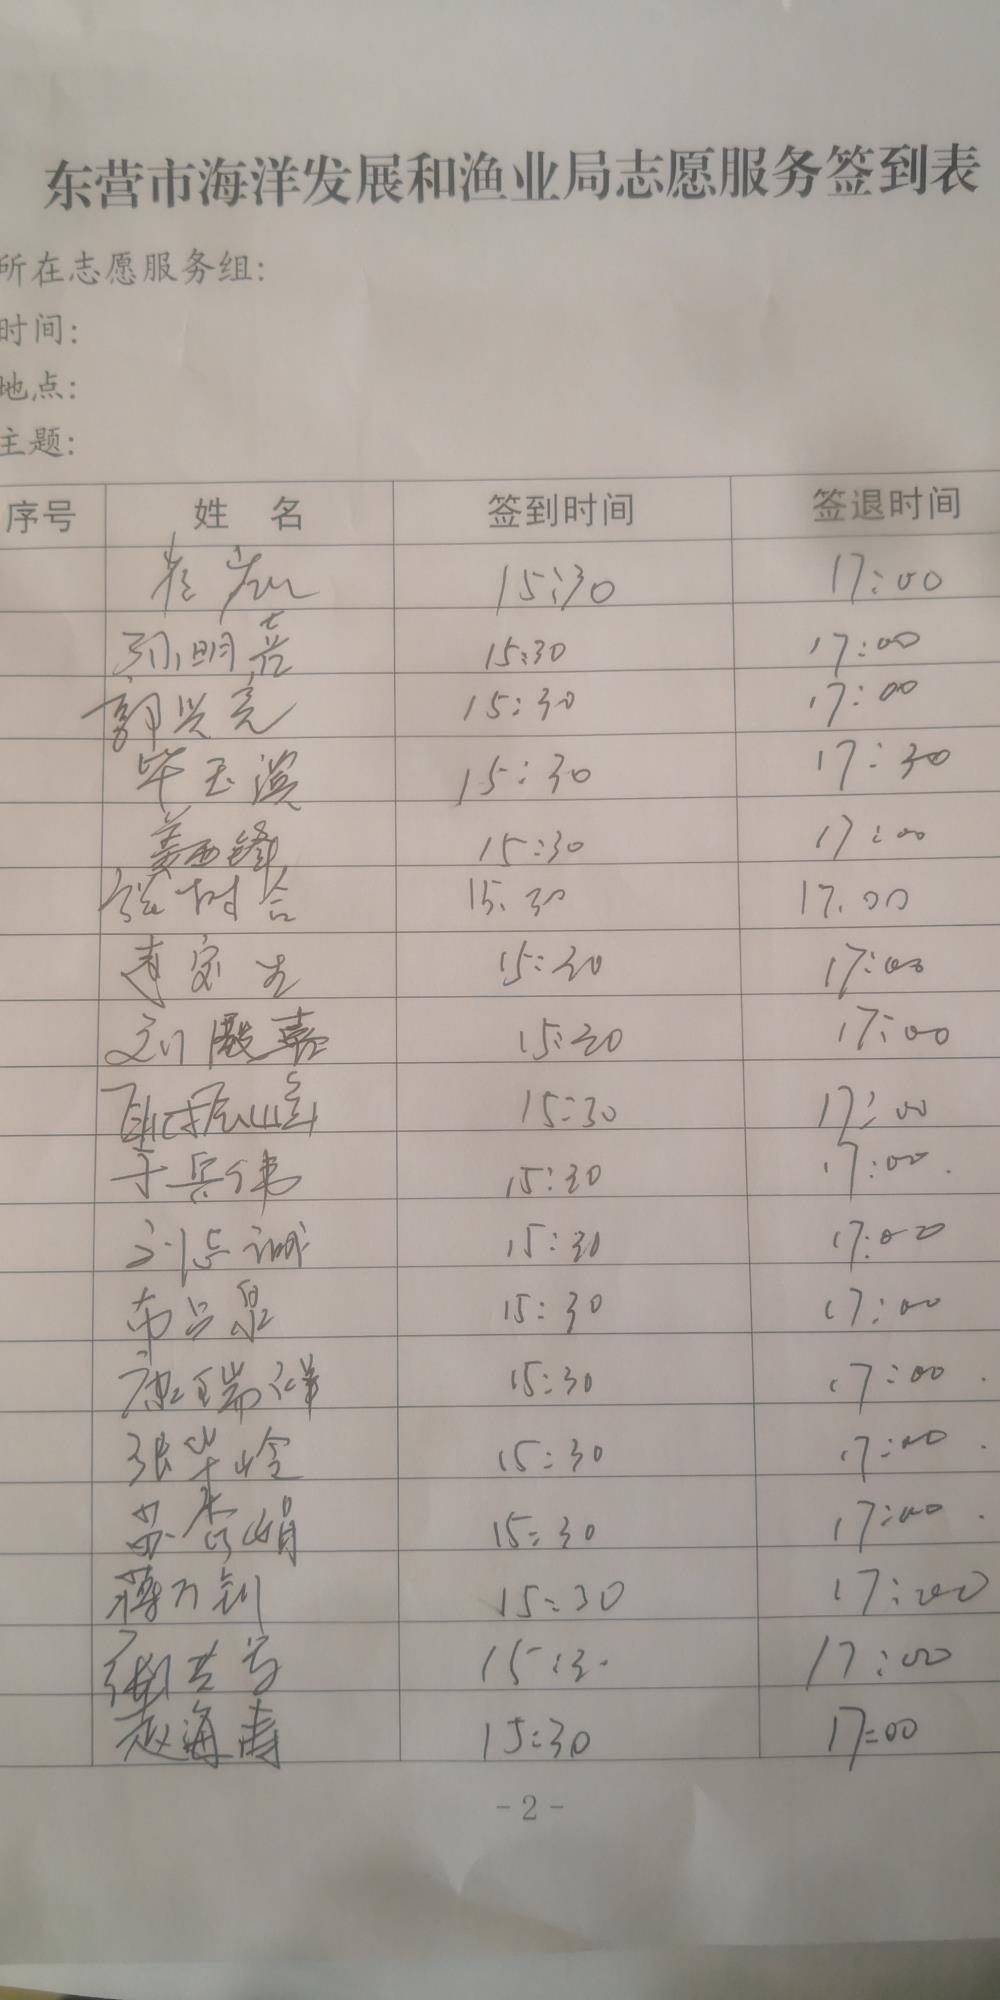 东营市海洋发展和渔业局志愿服务签到表
所在志愿服务组:
时间:
地点:
主题:
序号 姓 名 签到时间 签退时间
15:30 17:00
孙明喜 15:30 17:00
郭兴亮 15:30 17:00
毕玉滨 15:30 17:30
姜西锋 15:30 17:00
张树合 15.30 17.00
15:30 17:00
刘殿嘉 15:30 17:00
15:30 17:00
于兵伟 15:30 17:00.
15:30 17:00
15:30 17:00
康瑞祥 15:30 17:00.
张华岭 15:30 17:00.
苏香娟 15:30 17:00.
蒋万钊 15:30 17:00
15:30 17:00
赵海涛 15:30 17:00
- 2 -